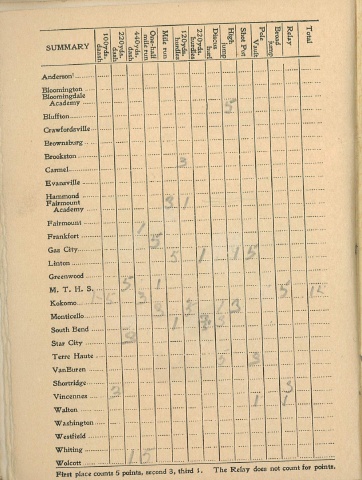 SUMMARY
100yds. dash
220yds. dash
440yds. dash
One-half mile run
Mile run
120yds. hurdles
220yds. hurdles
Discus hurl
High jump
Shot Put
Pole Vault
Broad jump
Relay
Total
Anderson
Bloomington
Bloomingdale Academy 5
Bluffton
Crawfordsville
Brownsburg
Brookston
Carmel 3
Evansville
Hammond
Fairmount Academy 3 1
Fairmount
Frankfort 1
Gas City 5
Linton 5 1 1 5
Greenwood
M. T. H. S. 5 1 5 15
Kokomo 3
Monticello 3 3 3
South Bend 1
Star City 3
Terre Haute
VanBuren 3
Shortridge
Vincennes 3 3
Walton 1 1
Washington
Westfield
Whiting
Wolcott 1 5
First place counts 5 points, second 3, third 1. The Relay does not count for points.